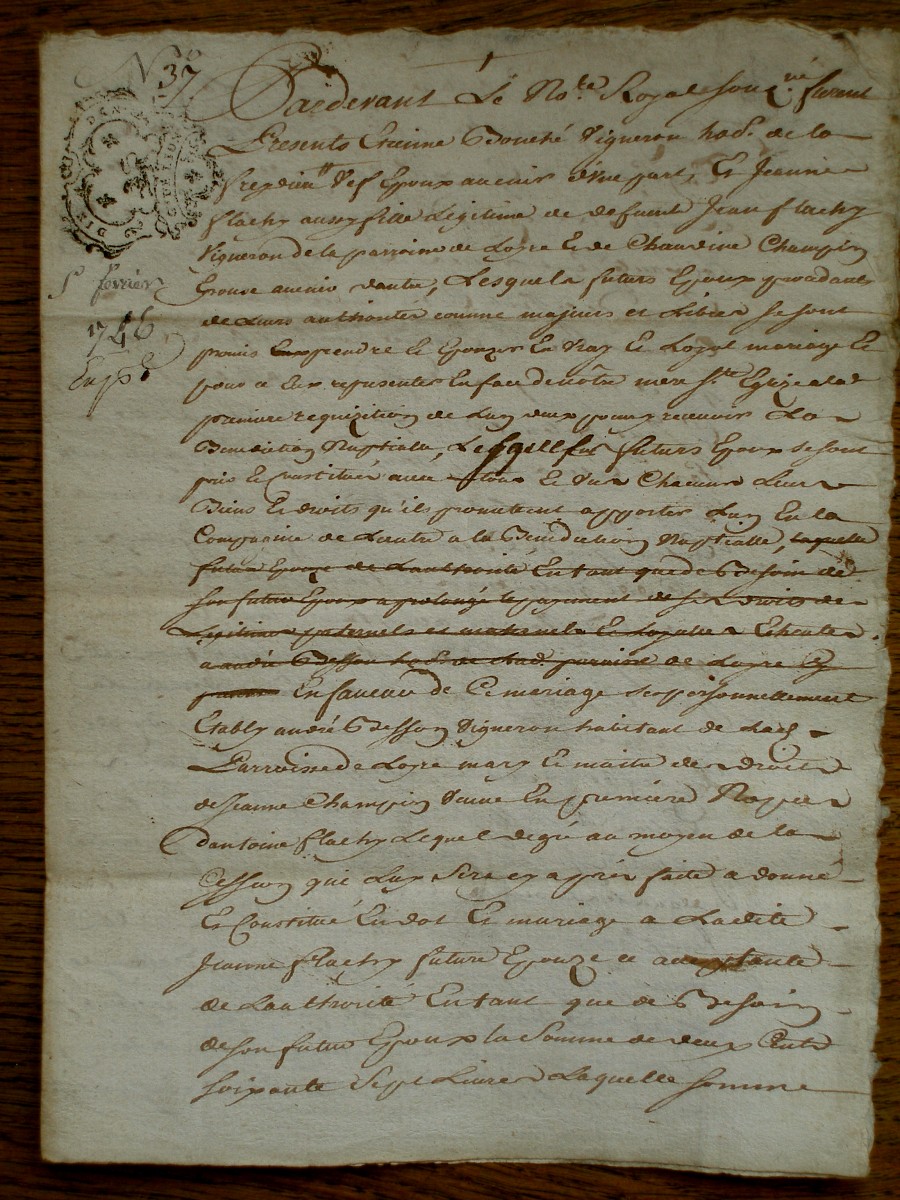 N 37
Pardevant Le No.re Royal soug.né furent
Presents Etienne Bouché Vigneron hab. de la
part, Et Jeanne
flachy aussy fille Legitime de defunt Jean flachy
Vigneron de la parroisse de Loyre Et de Claudine Champin
Epouse avenir dautre, Lesquels futurs Epoux procedants
5 fevrier
de Leurs authorités comme majeurs et Libres se sont
1746
promis prendre Et Epouzer En vray Et Loyal mariage Et
pour ce se representer En face de nôtre mere S.te Eglize a la
premiere requizition de Lun deux pour y recevoir La
Benediction Nuptialle, Lesquels futurs Epoux se sont
pris Et Constitués avec tous Et Uns Chacuns Leurs
Biens Et droits qu'ils promettent apporter Lun En la
Compagnie de Lautre a la Bénédiction Nuptialle, laquelle
future Epouze de Lauthorité En tant que de Besoin de
son futur Epoux a prolongé le payement de ses droits de
Legitime paternels et maternels Et Loyaux Echeutes
a andré Besson hab. de lad. parroisse de Loyre
En faveur de Ce mariage sest personnellement
Etably andré Besson Vigneron habitant de Lad.
Parroisse de Loyre mary Et maitre des droits
de Jeanne Champin Veuve En premiere Noppces
dantoine flachy Lequel de gré au moyen de la
Cession qui Luy sera cy après faite a donné
Et Constitué En dot Et mariage a Ladite
Jeanne flachy future Epouze ce acceptante
de Lauthorité En tant que de Besoin
de son futur Epoux la Somme de deux Cents
soixante Sept Livres Laquelle somme